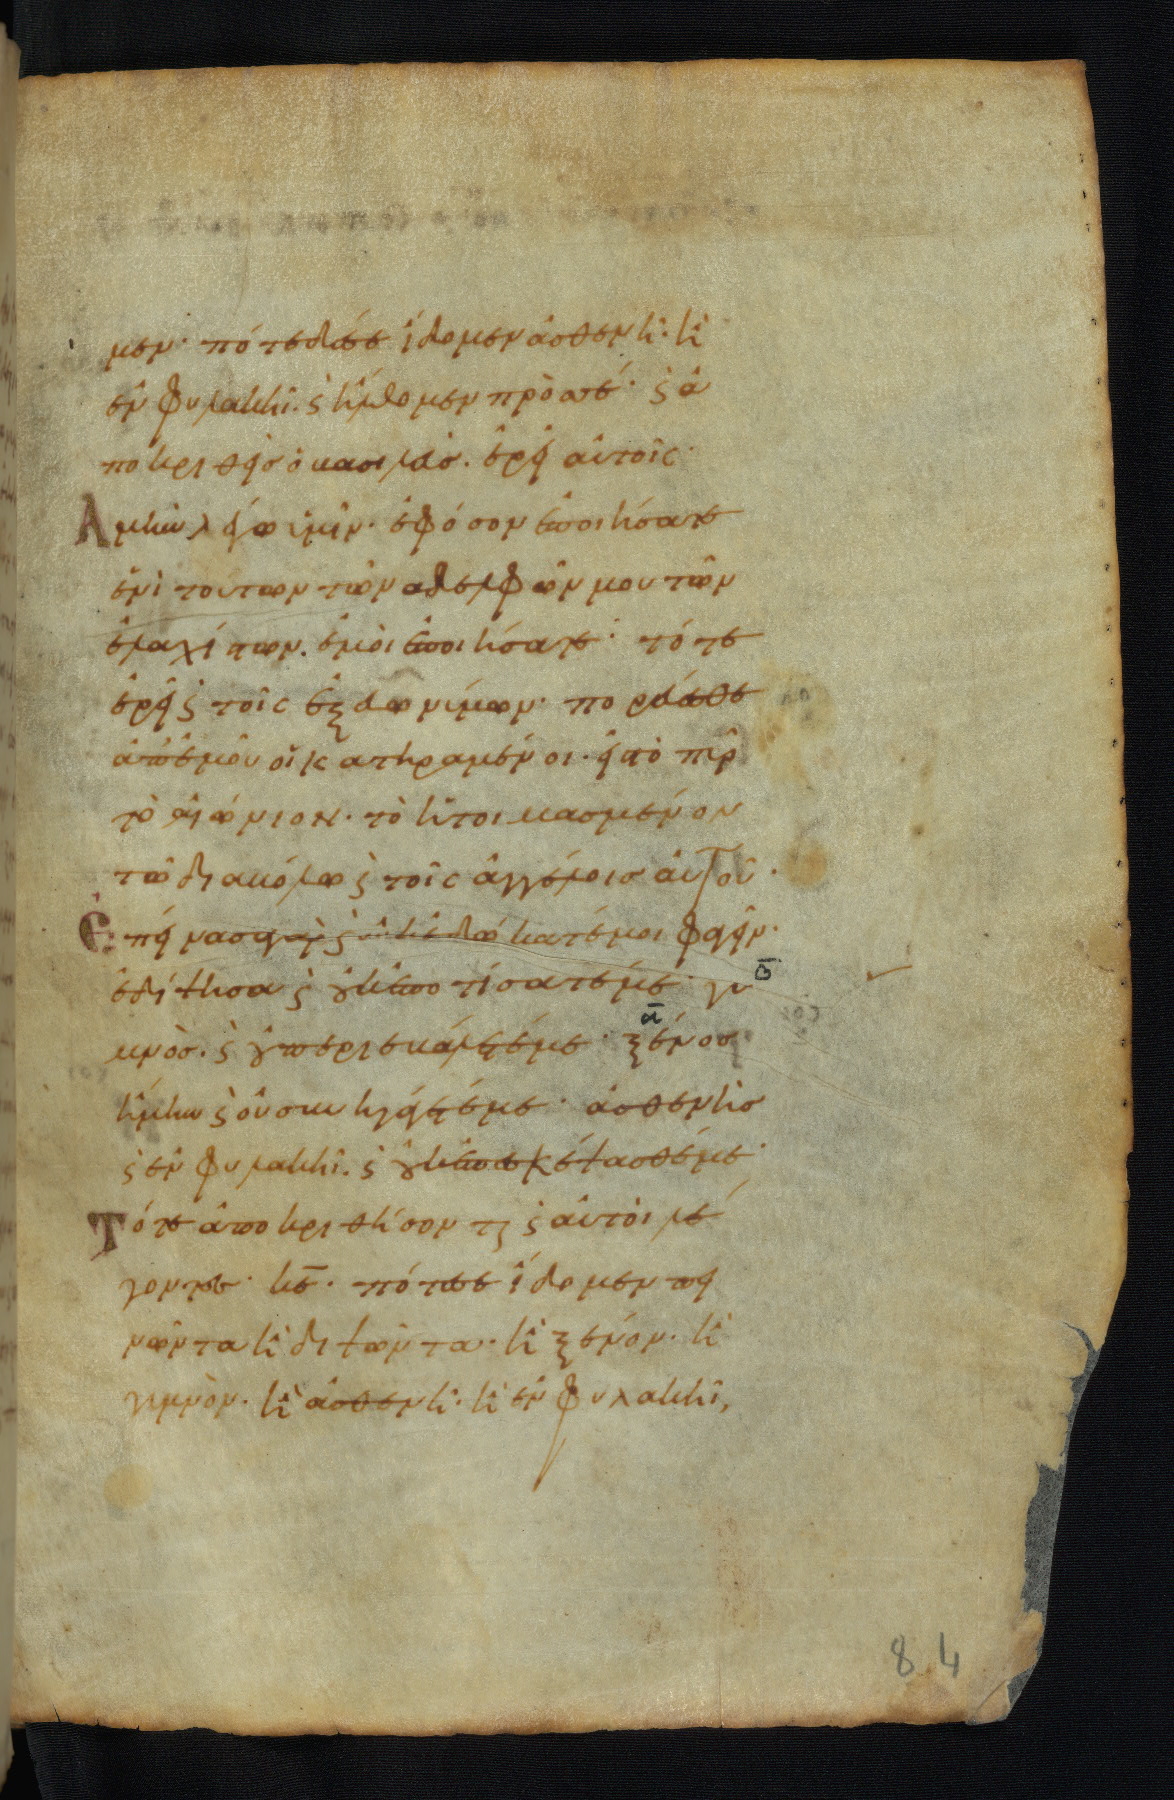 μεν· πότε δέ σε ἴδομεν ἀσθενῆ· ἢ
ἐν φυλακῆ· ϛ ἤλθομεν πρὸς σέ· ϛ ἀ
ποκριθεὶσ ὁ βασιλεύσ. ἐρεῖ αὐτοῖς·
Ἀμὴν λέγω ὑμῖν· ἐφόσον ἐποιήσατε
ἑνὶ τούτων τῶν ἀδελφῶν μου τῶν
ἐλαχίστων. ἐμοὶ ἐποιήσατε· τότε
ἐρεῖ ϛ τοῖς ἐξ εὐωνύμων· πορεύεσθε
ἀπ' ἐμοῦ οἱ κατηραμένοι· εἰς τὸ πῦρ
τὸ αἰώνιον· τὸ ἡτοιμασμένον
τῶ διαβόλω ϛ τοῖς ἀγγέλοισ αὐτοῦ·
Ἐπείνασα γὰρ ϛ οὐκ ἐδώκατέ μοι φαγεῖν·
ἐδίψησα ϛ οὐκ ἐποτίσατέ με· γυ β
μνὸσ· ϛ οὐ περιεβάλετέ με· α ξένοσ
ἤμην ϛ οὐ συνηγάγετέ με· ἀσθενὴσ
ϛ ἐν φυλακῆ· ϛ οὐκ ἐπεσκέψασθέ με·
Τότε ἀποκριθήσονται ϛ αὐτοὶ λέ
γοντεσ· κε̅· πότε σε ἴδομεν πει
νῶντα ἢ διψῶντα· ἢ ξένον· ἢ
γυμνὸν· ἢ ἀσθενῆ· ἢ ἐν φυλακῆ,
84